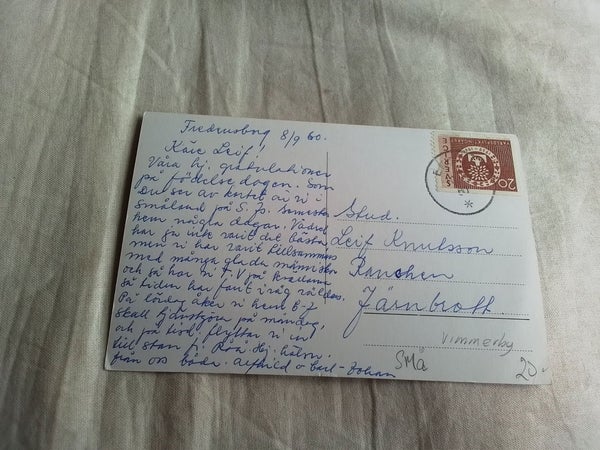 Fredriksborg 8/9 60.
Käre Leif!
Våra hj. gratulationer
på födelsedagen. Som
Du ser av kortet är vi i
Småland på S. Js. Semester
hem några dagar. Vädret
har ju inte varit det bästa,
men vi har varit tillsammans
med många glada människor
och så har vi T.V på kvällarna
så tiden har fort i väg
På lördag åker vi hem
skall tjänstgöra på måndag,
och på tisd. flyttar vi in
till stan
från oss båda. Alfhild o Carl-Johan
Stud.
Leif Knutsson
Ranchen
Järnbrott.
Vimmerby
SMÅ
20:-
SVERIGE
20